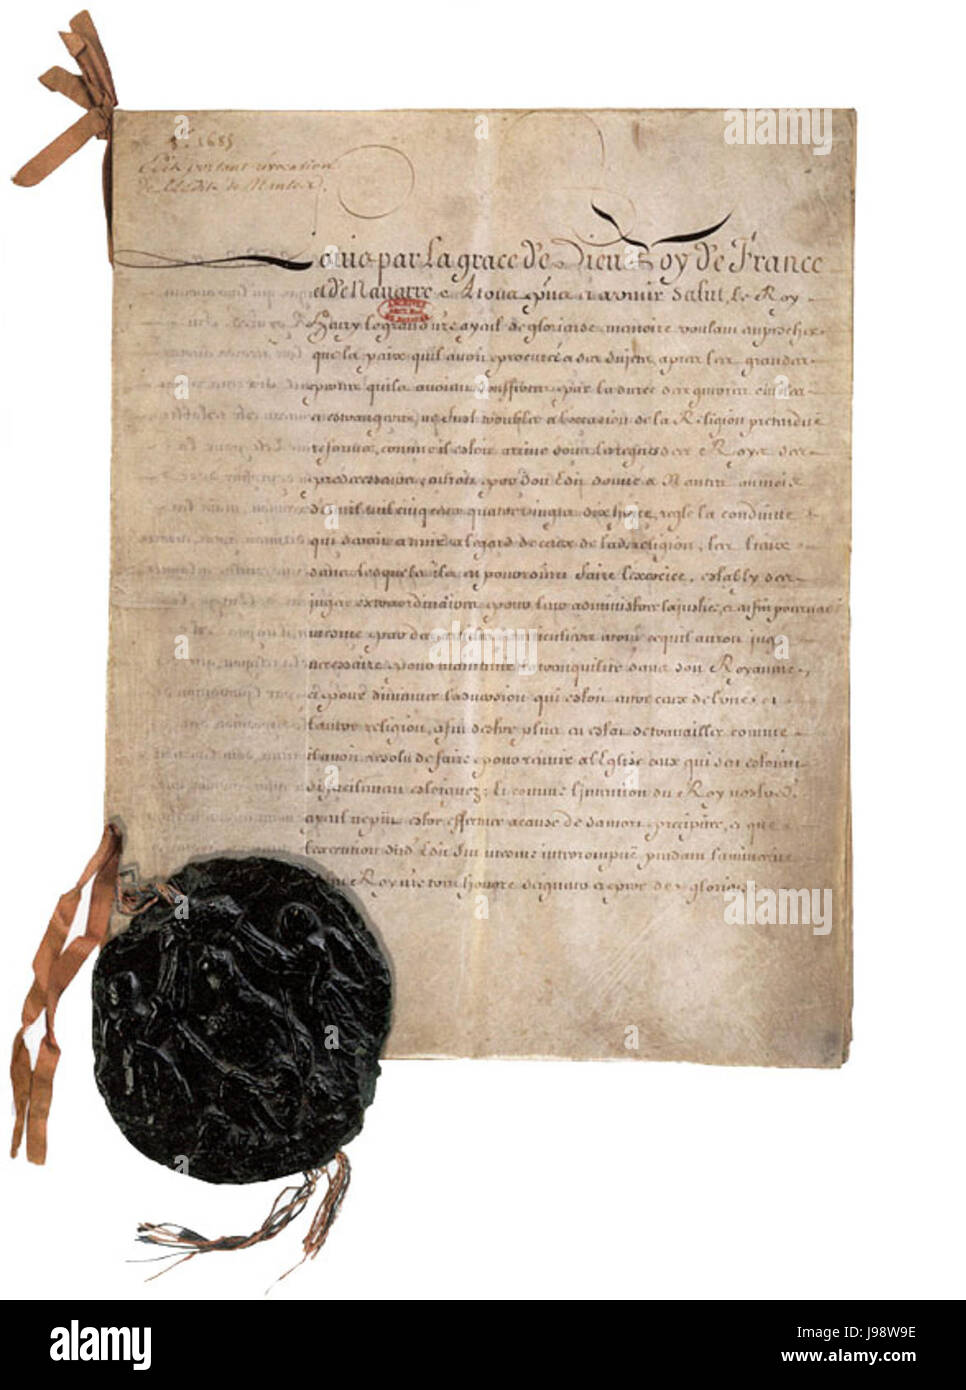 8.bre 1685
Edit portant revocation
de l'Edit de Nantes.
Louis par la grace de Dieu Roy de France
et de Navarre a tous presens et a venir Salut, le Roy
ARCHIVES
Henry le grand n.re ayeul de glorieuse memoire voulant empescher
que la paix qu'il avoit procurée a ses sujets, apres les grandes
pertes qu'ils avoient souffertes par la durée des guerres civiles
et estrangeres, ne fust troublée a l'occasion de la Religion pretendue
reformée, comme il estoit arrivé sous les regnes des Roys ses
predecesseurs, auroit par son Edit donné a Nantes au mois
d'Avril mil cinq cens quatre vingts dix huict, reglé la conduitte
qui seroit a tenir a l'egard de ceux de lad. religion, les lieux
dans lesquels ils en pourroient faire l'exercice, estably des
juges extraordinaires pour leur administrer la justice, et enfin pourveu
mesme par des articles particuliers a tout ce qu'il auroit jugé
necessaire pour maintenir la tranquilité dans son Royaume,
et pour diminuer l'aversion qui estoit entre ceux de l'une et
l'autre religion, afin d'estre plus en estat de travailler comme
il avoit resolu de faire pour reünir a l'Eglise ceux qui s'en estoient
si facilement esloignez; Et comme l'intention du Roy nostred.
ayeul ne put estre effectuée a cause de sa mort precipitée, et que
l'execution dud. Edit fut mesme interrompuë pendant la minorité
du feu Roy n.re tres honoré seigneur et pere de glorieuse
alamy
Image ID: J98W9E
www.alamy.com